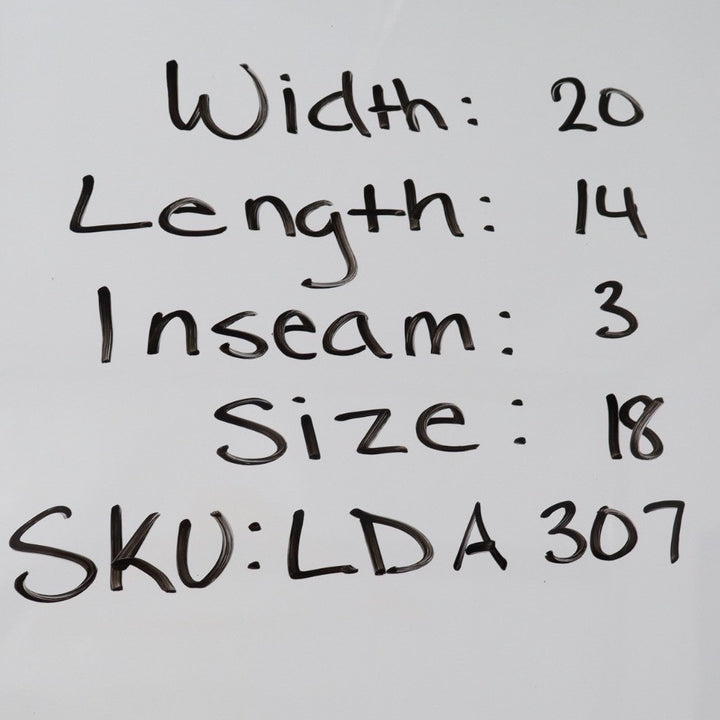 Width: 20
Length: 14
Inseam: 3
Size: 18
SKU:LDA 307